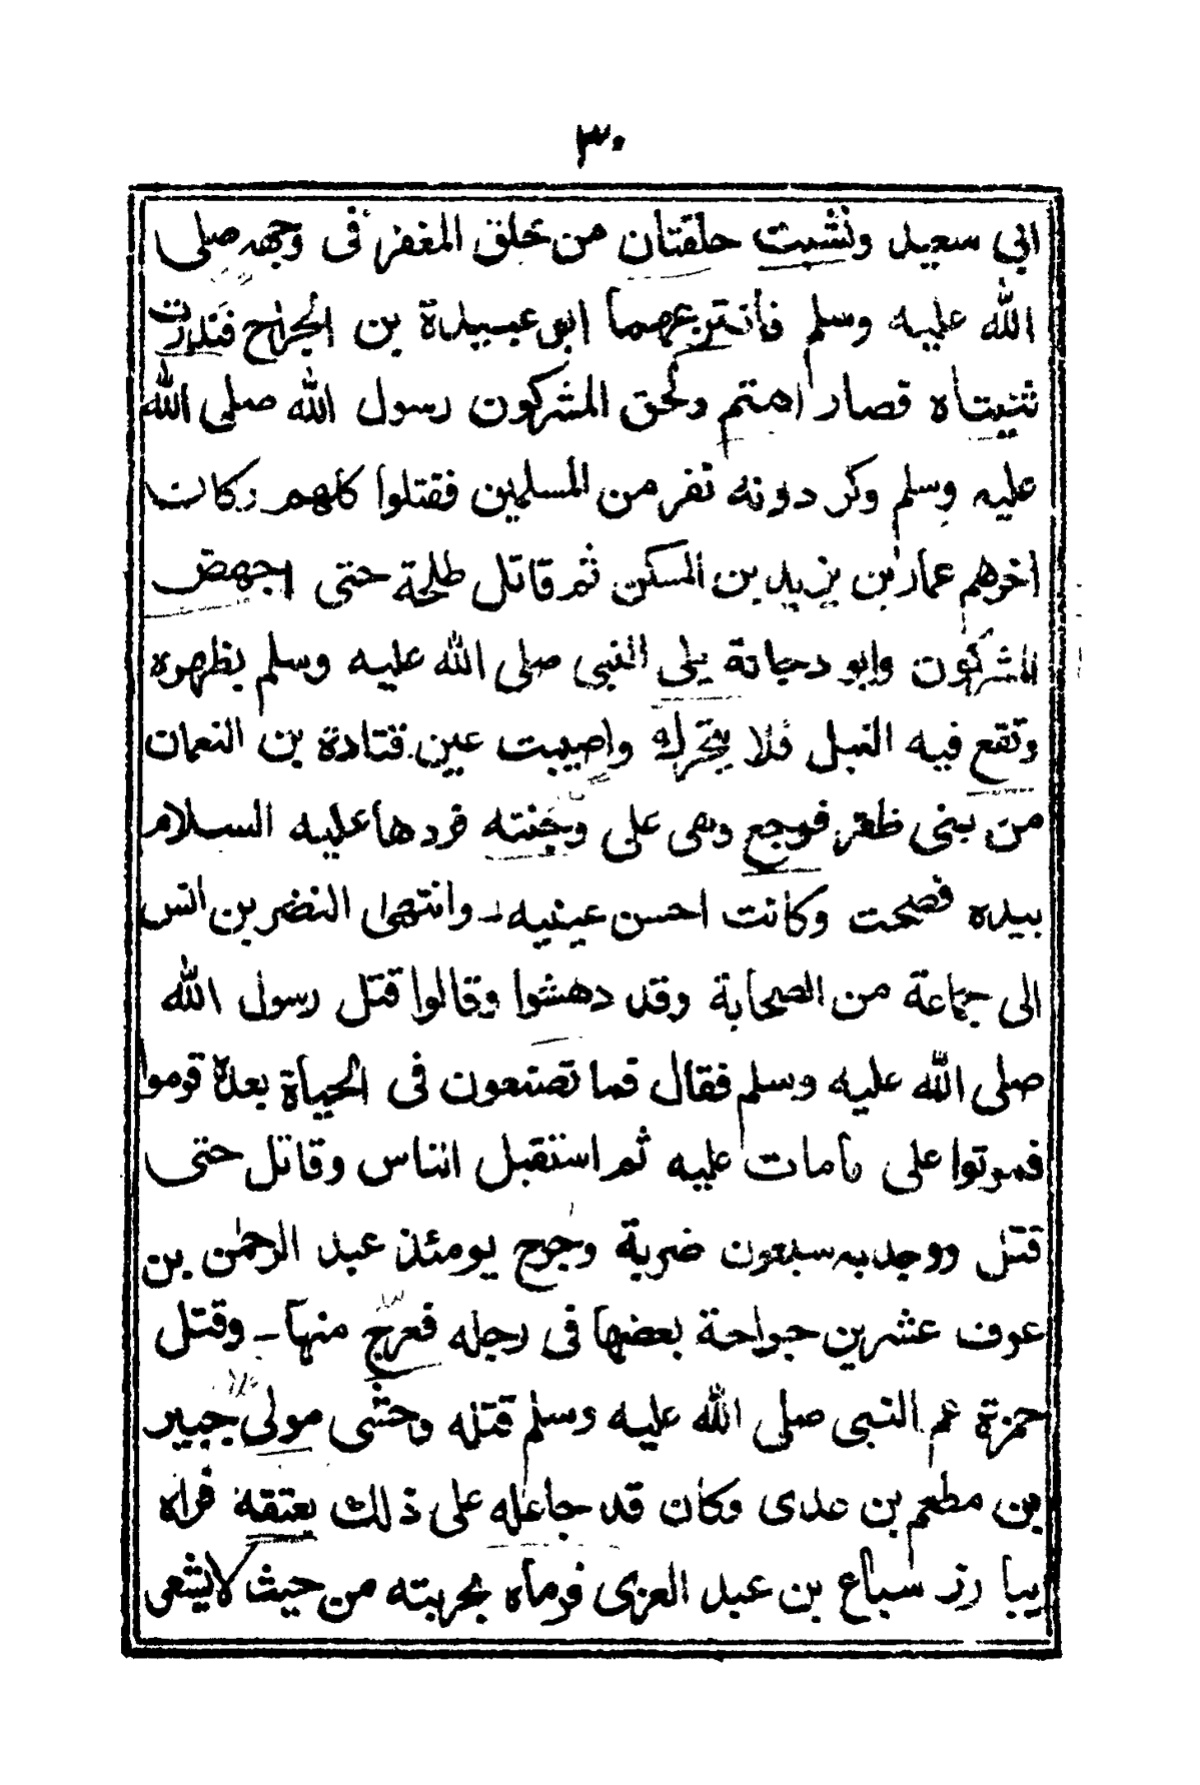 ٣٠
ابي سعيد ونشبت حلقتان من حلق المغفر فى وجهه صلى
الله عليه وسلم فانتزعهما ابو عبيدة بن الجراح فندرت
ثنيتاه فصار اهتم ولحق المشركون رسول الله صلى الله
عليه وسلم وكر دونه نفر من المسلمين فقتلوا كلهم وكان
اخرهم عمار بن يزيد بن السكن ثم قاتل طلحة حتى اجهض
المشركون وابو دجانة يلى النبى صلى الله عليه وسلم بظهره
وتقع فيه النبل فلا يتحرك واصيبت عين قتادة بن النعمان
من بنى ظفر فرجع وهى على وجنته فردها عليه السلام
بيده فصحت وكانت احسن عينيه ـ وانتهى النضر بن انس
الى جماعة من الصحابة وقد دهشوا وقالوا قتل رسول الله
صلى الله عليه وسلم فقال فما تصنعون فى الحياة بعده قوموا
فموتوا على مامات عليه ثم استقبل الناس وقاتل حتى
قتل ووجد به سبعون ضربة وجرح يومئذ عبد الرحمن بن
عوف عشرين جراحة بعضها فى رجله فعرج منها ـ وقتل
حمزة عم النبى صلى الله عليه وسلم قتله وحشى مولى جبير
بن مطعم بن عدى وكان قد جاعله على ذلك بعتقه فراه
يبارز سباع بن عبد العزى فرماه بحربته من حيث لايشعر